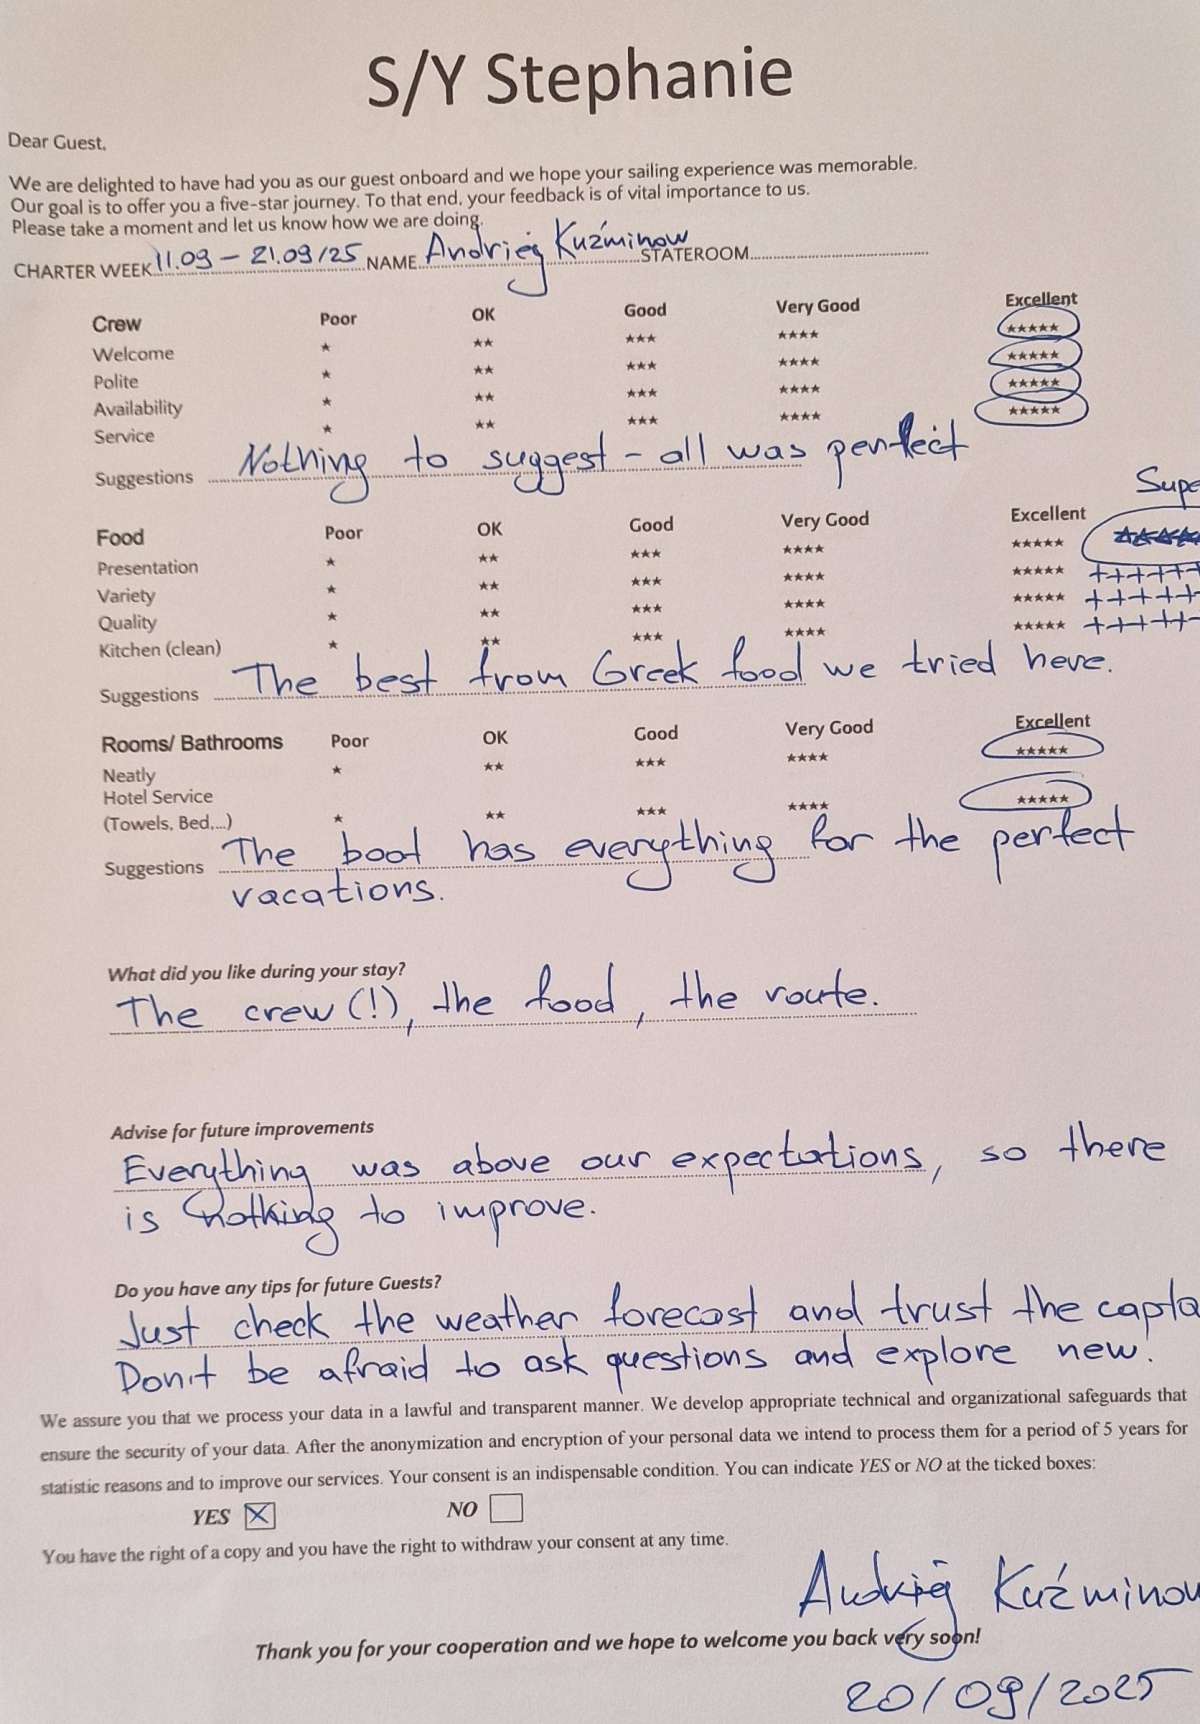 S/Y Stephanie
Dear Guest,
We are delighted to have had you as our guest onboard and we hope your sailing experience was memorable.
Our goal is to offer you a five-star journey. To that end, your feedback is of vital importance to us.
Please take a moment and let us know how we are doing.
CHARTER WEEK 11.09 – 21.09/25 NAME Andriej Kuźminow STATEROOM
Crew Poor OK Good Very Good Excellent
Welcome ★ ★★ ★★★ ★★★★ ★★★★★
Polite ★ ★★ ★★★ ★★★★ ★★★★★
Availability ★ ★★ ★★★ ★★★★ ★★★★★
Service ★ ★★ ★★★ ★★★★ ★★★★★
Suggestions Nothing to suggest – all was perfect
Supe
Food Poor OK Good Very Good Excellent
Presentation ★ ★★ ★★★ ★★★★ ★★★★★
Variety ★ ★★ ★★★ ★★★★ ★★★★★ ++++++
Quality ★ ★★ ★★★ ★★★★ ★★★★★ +++++
Kitchen (clean) ★ ★★ ★★★ ★★★★ ★★★★★ +++++
Suggestions The best from Greek food we tried here.
Rooms/ Bathrooms Poor OK Good Very Good Excellent
Neatly ★ ★★ ★★★ ★★★★ ★★★★★
Hotel Service
(Towels, Bed,...) ★ ★★ ★★★ ★★★★ ★★★★★
Suggestions The boat has everything for the perfect
vacations.
What did you like during your stay?
The crew (!), the food, the route.
Advise for future improvements
Everything was above our expectations, so there
is nothing to improve.
Do you have any tips for future Guests?
Just check the weather forecast and trust the capta
Don't be afraid to ask questions and explore new.
We assure you that we process your data in a lawful and transparent manner. We develop appropriate technical and organizational safeguards that
ensure the security of your data. After the anonymization and encryption of your personal data we intend to process them for a period of 5 years for
statistic reasons and to improve our services. Your consent is an indispensable condition. You can indicate YES or NO at the ticked boxes:
YES ☒ NO ☐
You have the right of a copy and you have the right to withdraw your consent at any time.
Andriej Kuźminow
Thank you for your cooperation and we hope to welcome you back very soon!
20/09/2025